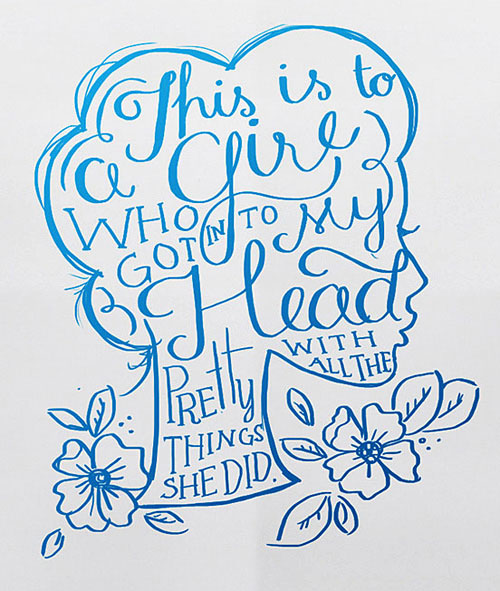 This is to
a Girl
WHO
GOT IN TO MY
Head
WITH
ALL THE
PRETTY
THINGS
SHE DID.